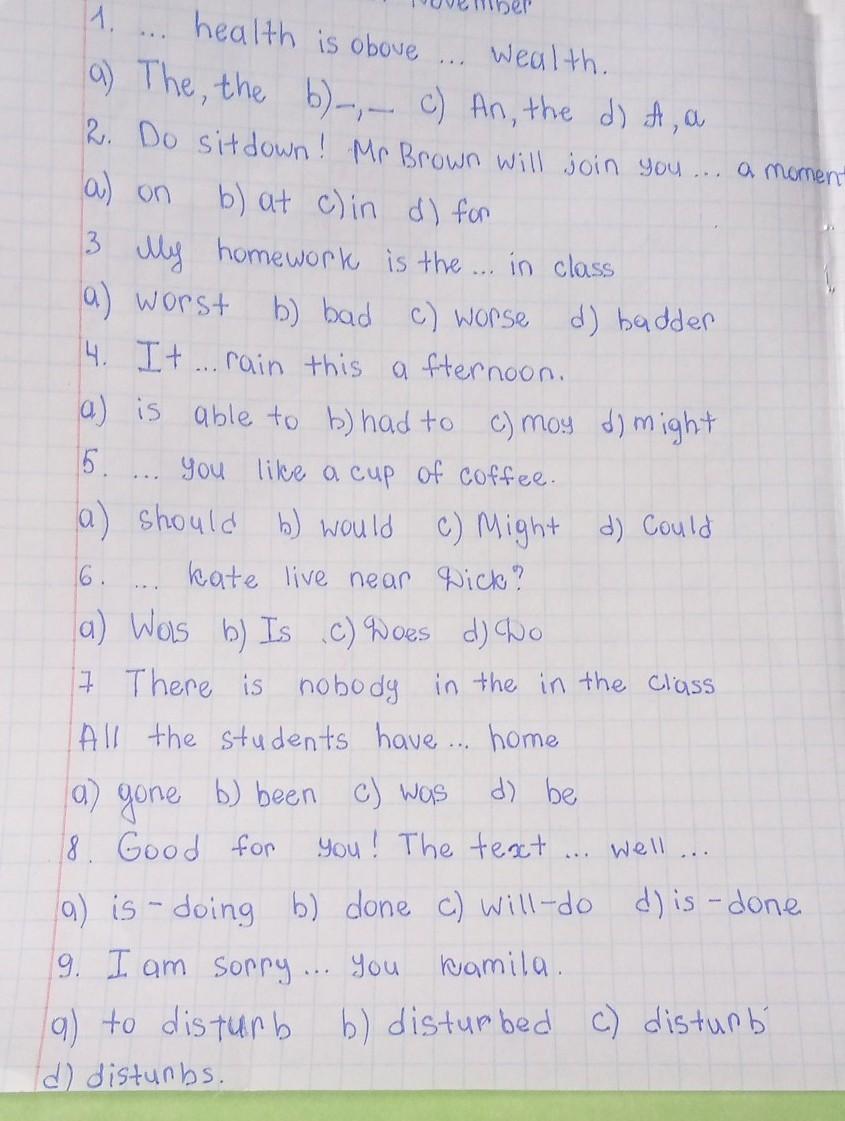 November
1. ... health is obove ... wealth.
a) The, the b)-,- c) An, the d) A, a
2. Do sitdown! Mr Brown will join you ... a moment
a) on b) at c) in d) for
3 My homework is the ... in class
a) worst b) bad c) worse d) badder
4. It ... rain this afternoon.
a) is able to b) had to c) may d) might
5. ... you like a cup of coffee.
a) should b) would c) Might d) Could
6. ... Kate live near Dick?
a) Was b) Is c) Does d) Do
7 There is nobody in the in the class
All the students have ... home
a) gone b) been c) was d) be
8. Good for you! The text ... well ...
a) is - doing b) done c) will-do d) is - done
9. I am sorry ... you Kamila.
a) to disturb b) disturbed c) disturb
d) disturbs.